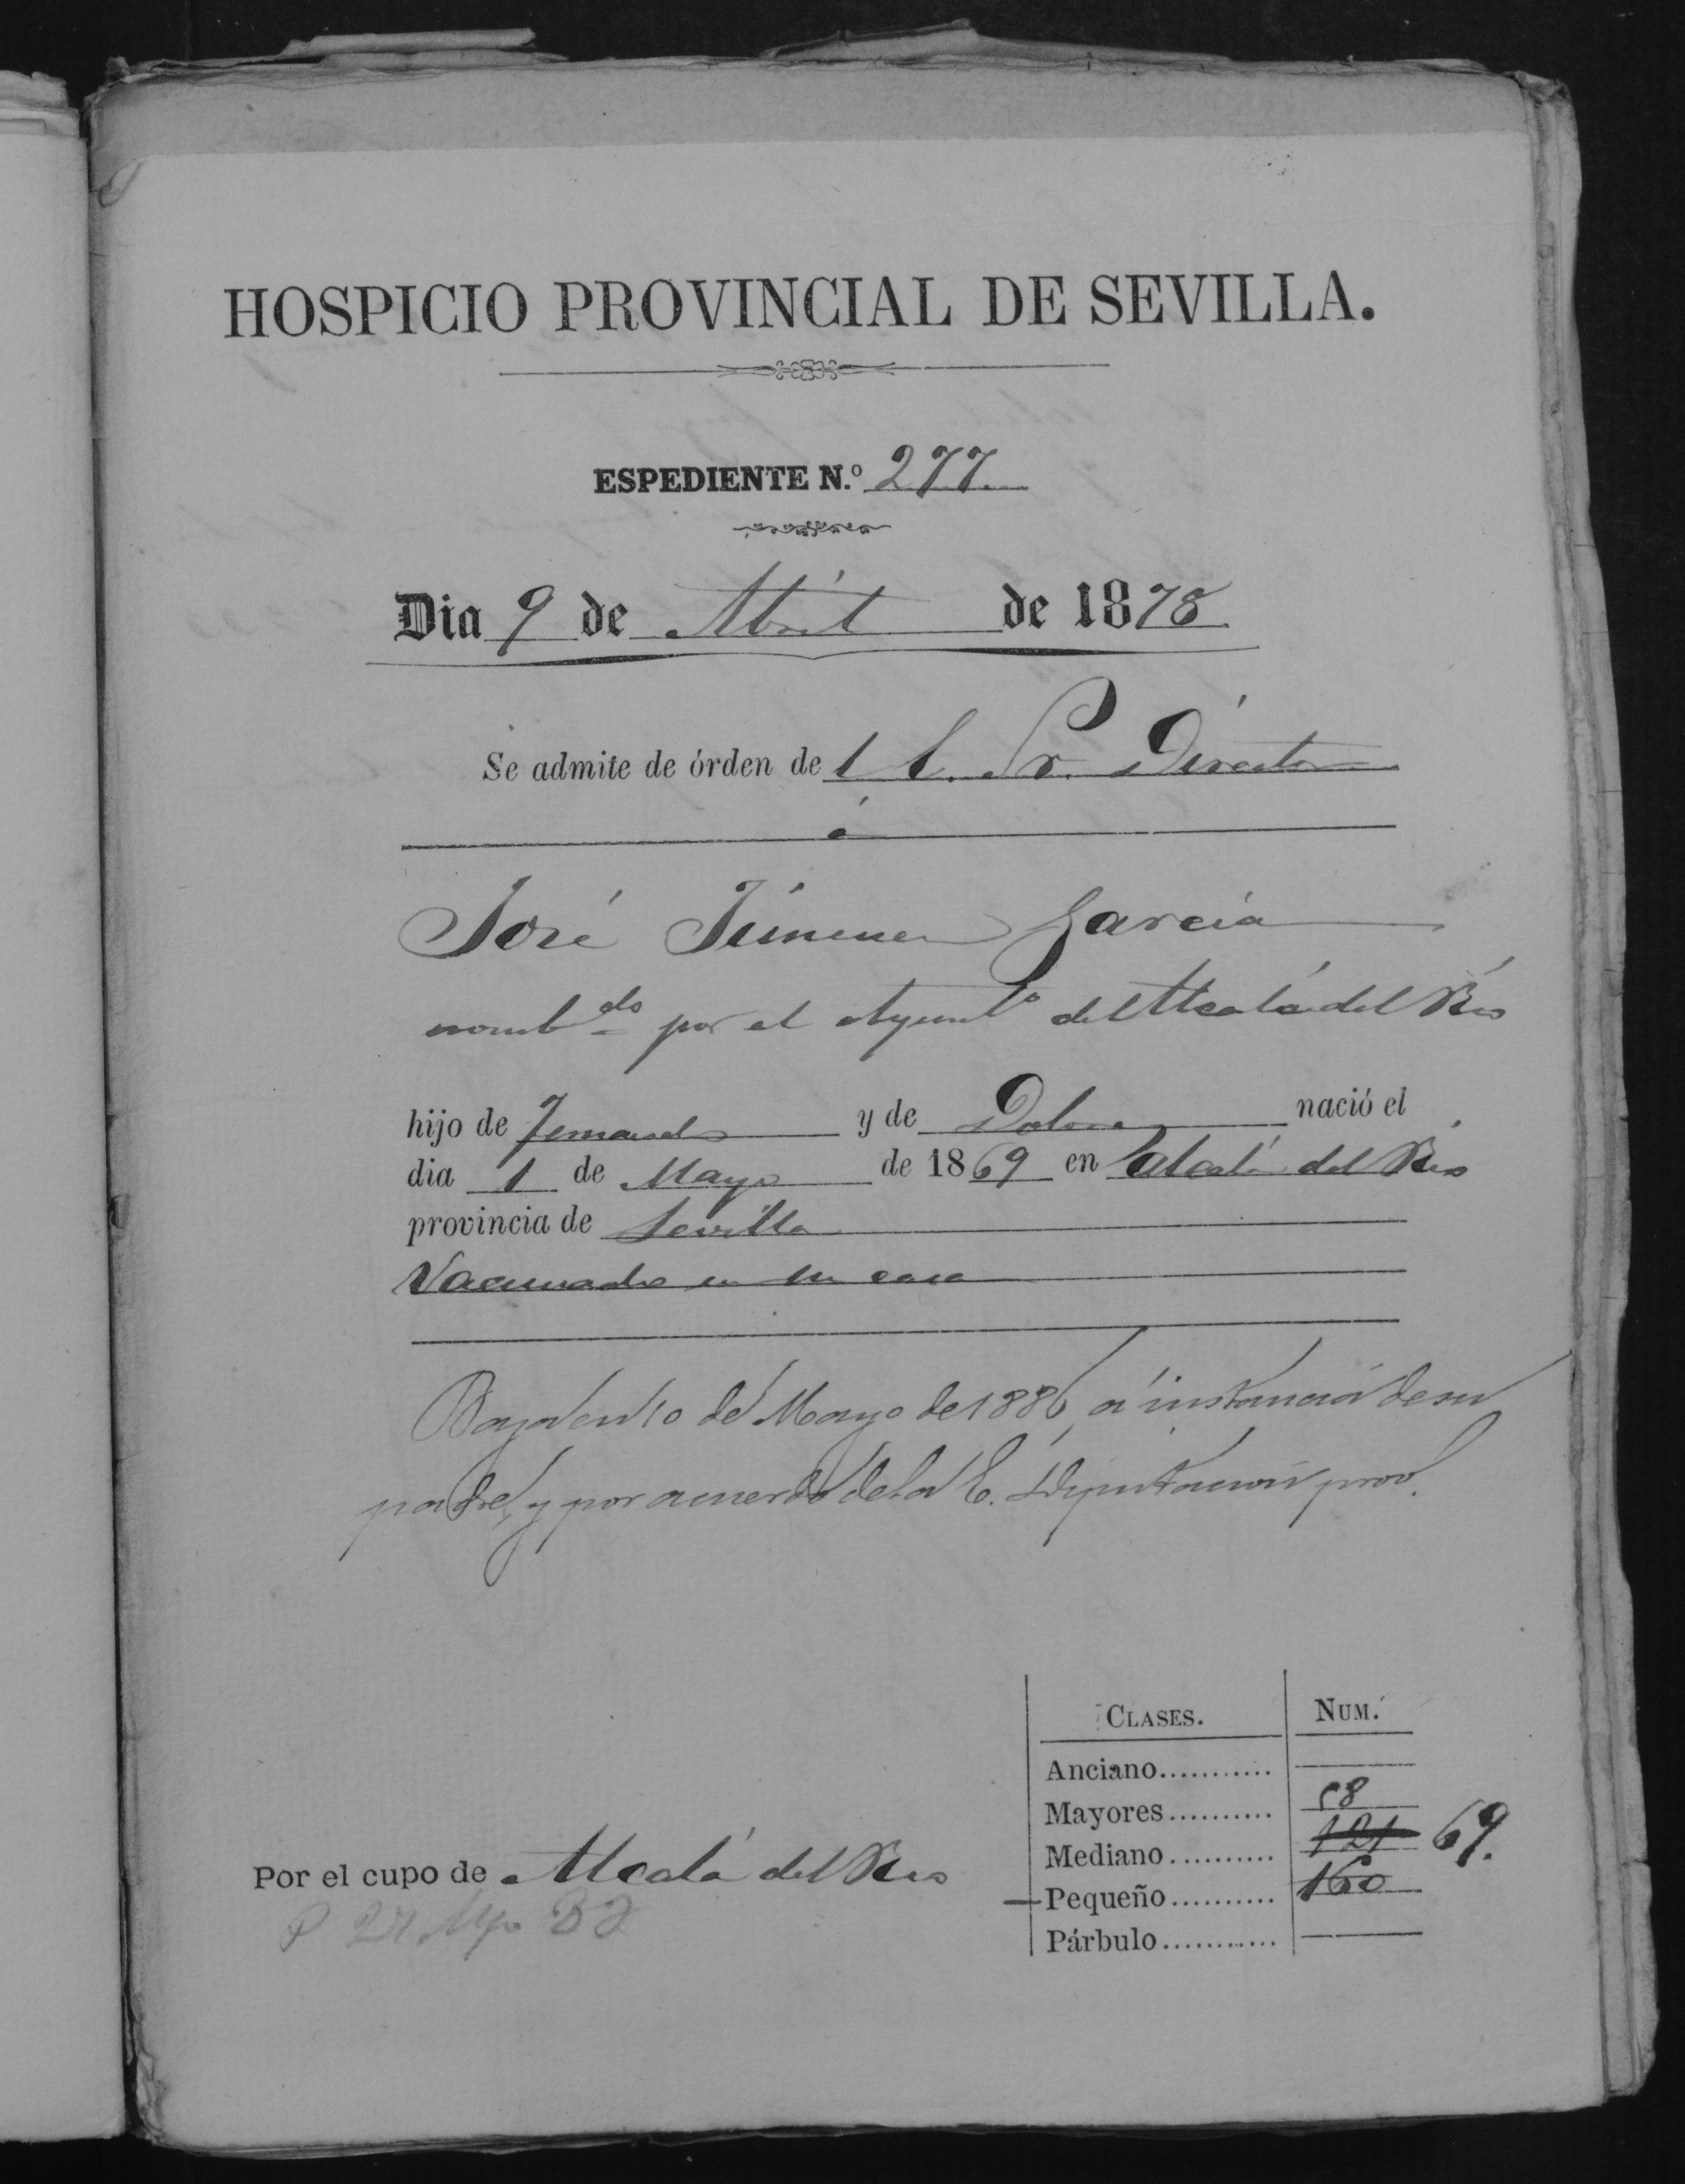 HOSPICIO PROVINCIAL DE SEVILLA.
ESPEDIENTE N.º 277.
Dia 9 de Abril de 1878
Se admite de órden del Sr. Director
á
José Jimenez García
nomb.do por el Ayunt.o de Alcalá del Rio
hijo de Fernando y de Dolores nació el
dia 1 de Mayo de 1869 en Alcalá del Rio
provincia de Sevilla
Vacunado en su casa
Baja en 10 de Mayo de 1886 á instancia de su
padre, y por acuerdo de la E. Diputacion prov.
CLASES. NUM.
Anciano...........
Mayores.......... 58
Mediano.......... 121 69.
Pequeño.......... 160
Párbulo...........
Por el cupo de Alcalá del Rio